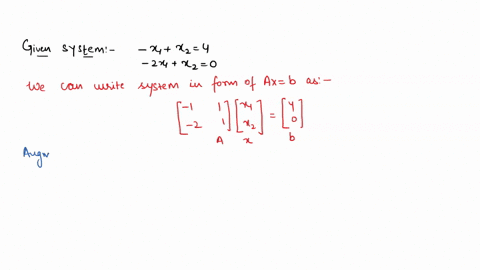 Given system:- -x₁ + x₂ = 4
-2x₁ + x₂ = 0
We can write system in form of Ax=b as:-
[-1 1] [x₁] = [4]
[-2 1] [x₂] [0]
A x b
Augm